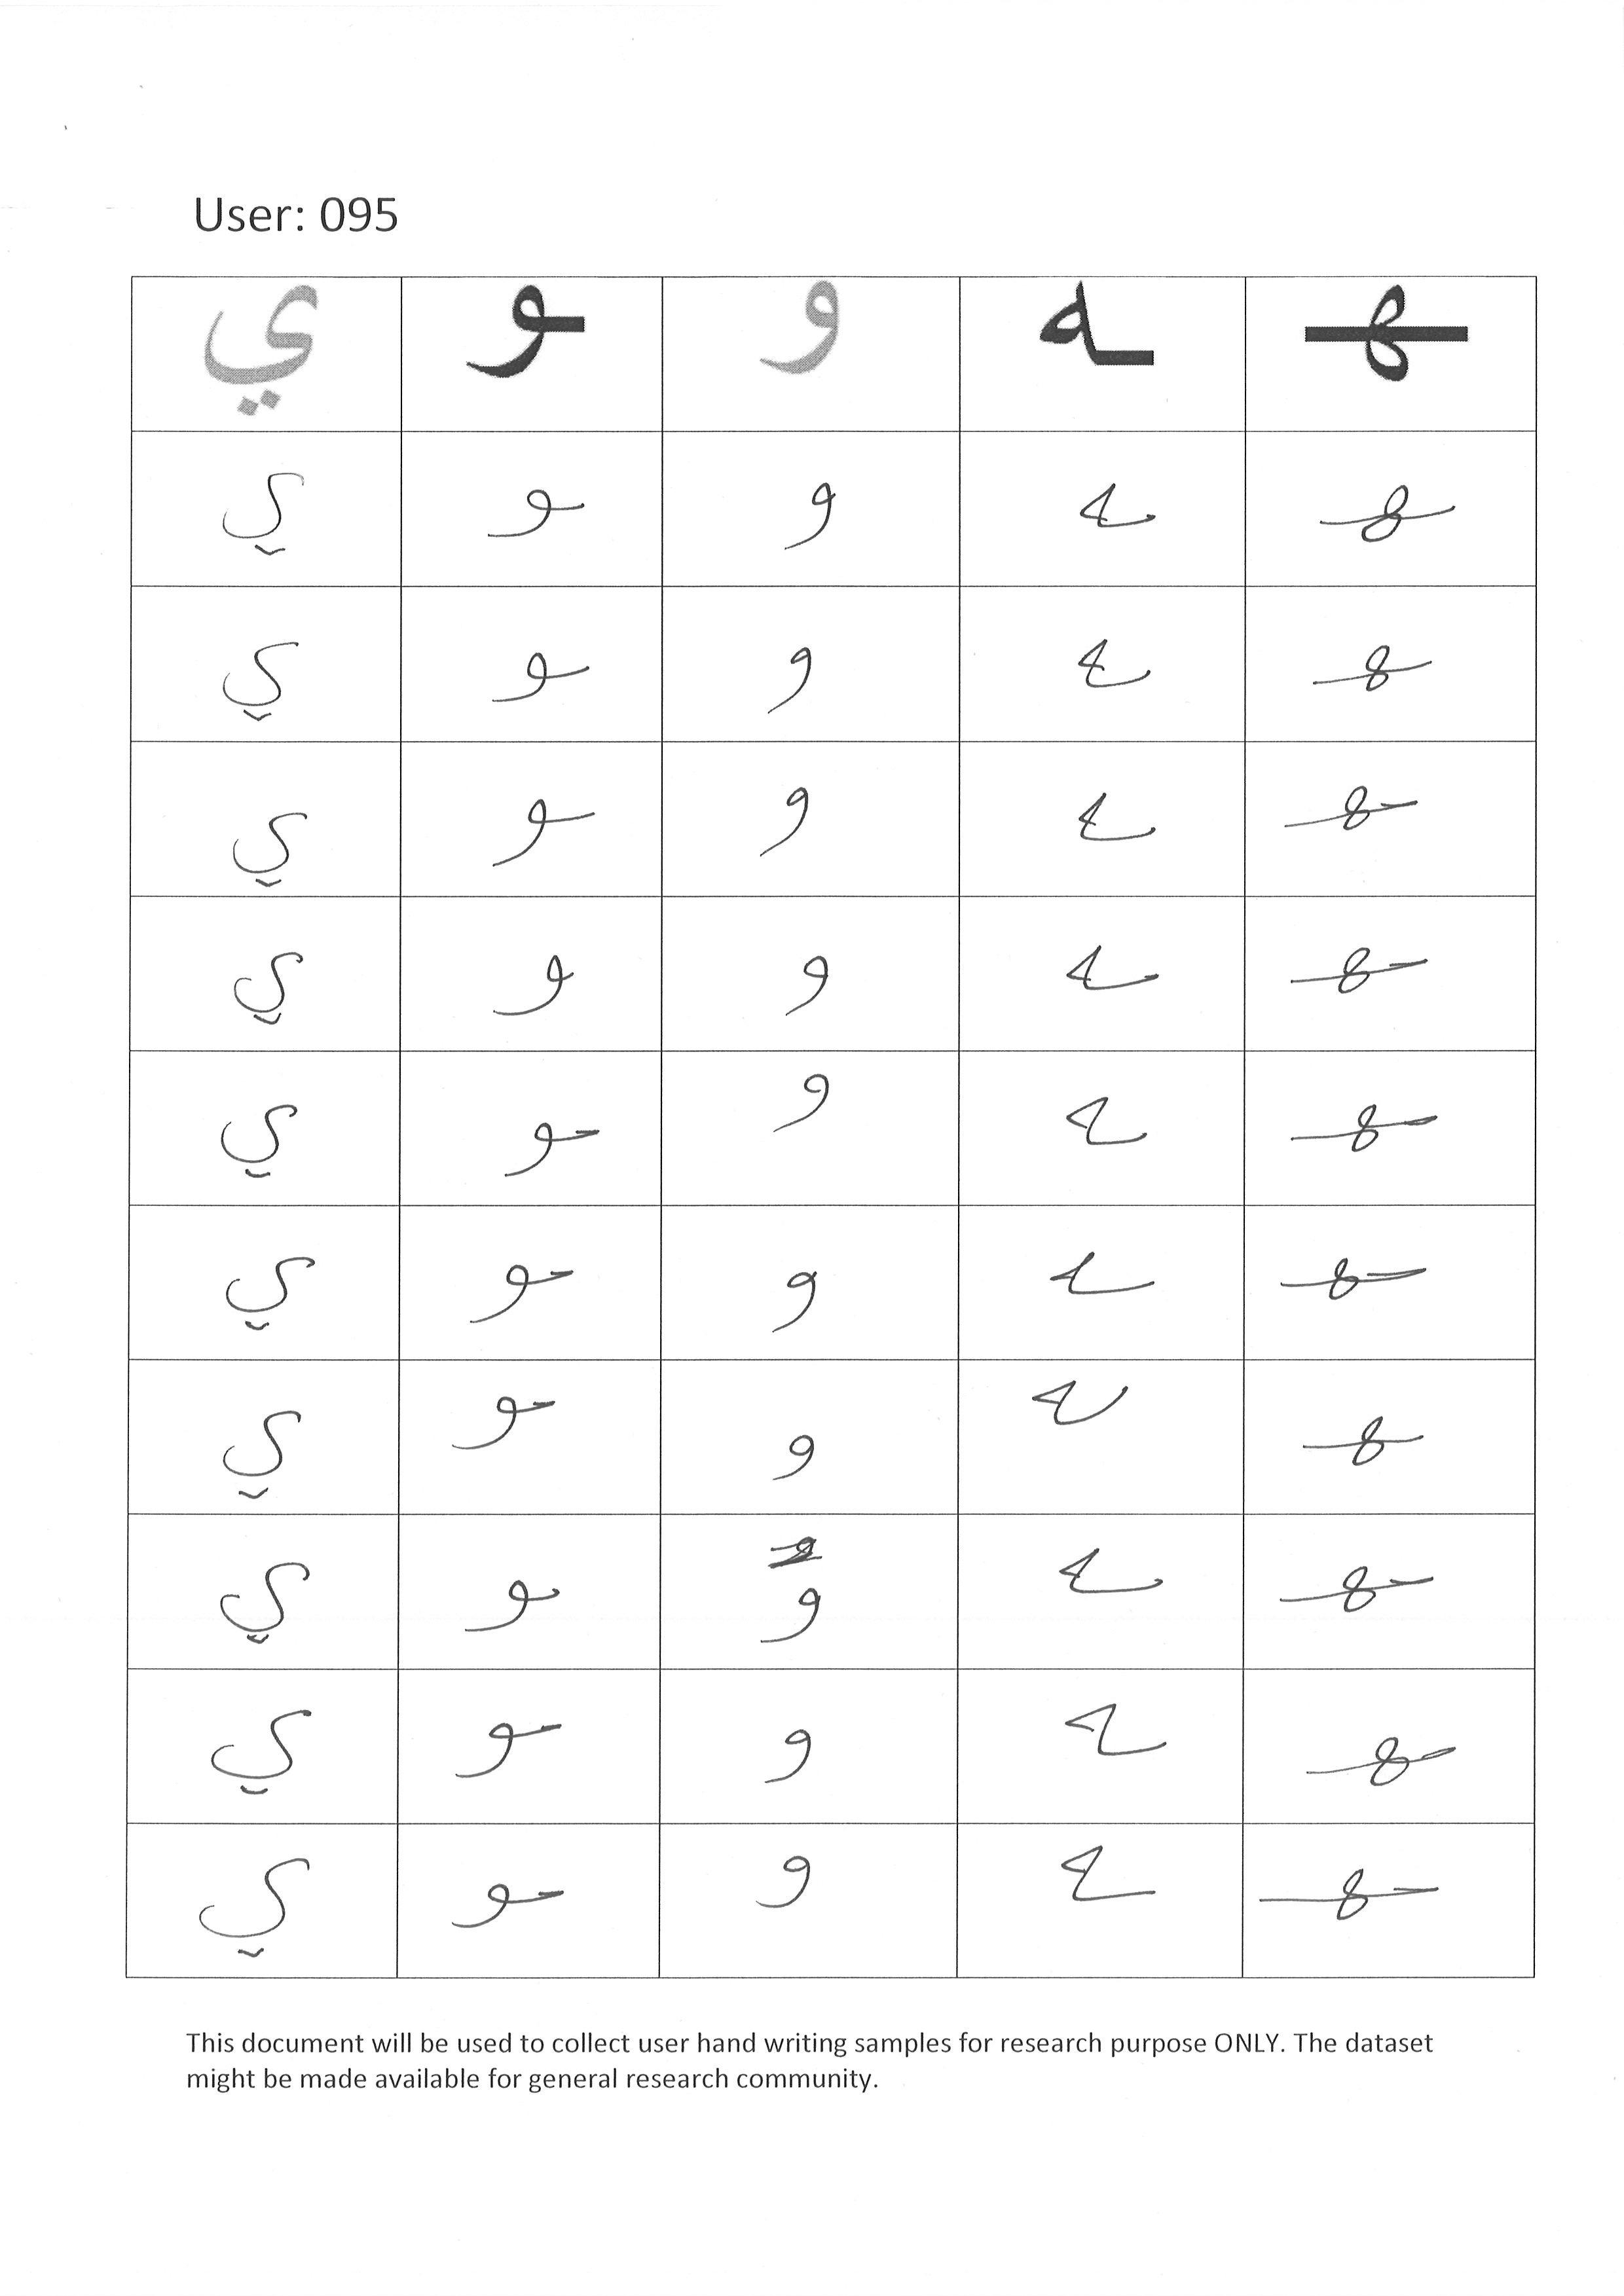 User: 095
ي ـو و ـه ـهـ
ي ـو و ـه ـهـ
ي ـو و ـه ـهـ
ي ـو و ـه ـهـ
ي ـو و ـه ـهـ
ي ـو و ـه ـهـ
ي ـو و ـه ـهـ
ي ـو و ـه ـهـ
ي ـو و ـه ـهـ
ي ـو و ـه ـهـ
ي ـو و ـه ـهـ
This document will be used to collect user hand writing samples for research purpose ONLY. The dataset
might be made available for general research community.